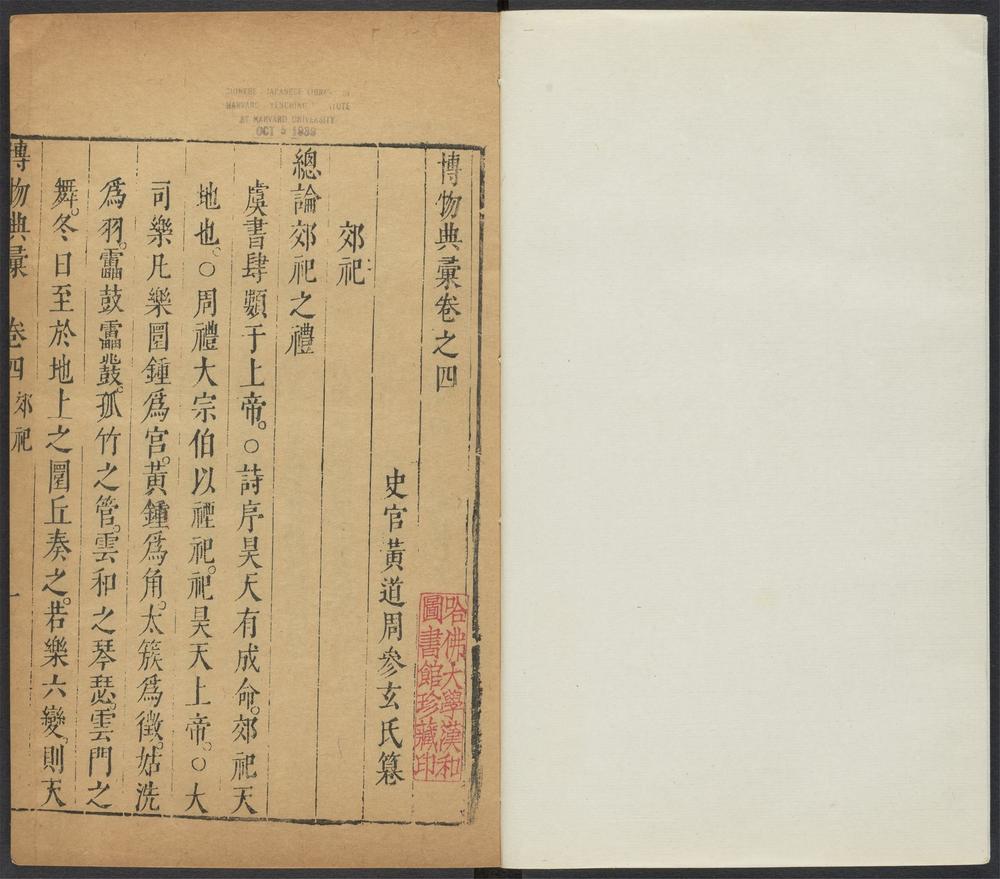 博物典彙卷之四
史官黃道周參玄氏纂
郊祀
總論郊祀之禮
虞書肆類于上帝。○詩序昊天有成命。郊祀天
地也。○周禮大宗伯以禋祀。祀昊天上帝。○大
司樂凡樂圜鍾爲宮。黃鍾爲角。太簇爲徵。姑洗
爲羽。靁鼓靁鼗。孤竹之管。雲和之琴瑟。雲門之
舞。冬日至於地上之圜丘奏之。若樂六變。則天
博物典彙 卷四 郊祀 一
哈佛大學漢和
圖書館珍藏印
CHINESE JAPANESE LIBRARY
HARVARD YENCHING
AT HARVARD UNIVERSITY
OCT 5 1939